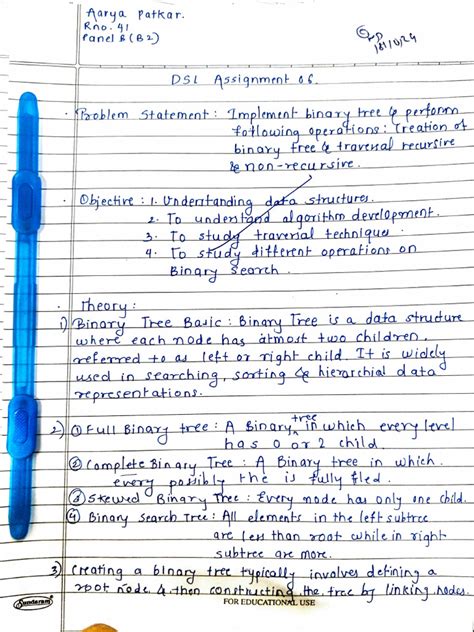 Aarya Patkar.
Rno. 41
Panel B (B2)
18/10/24
DSL Assignment 06.
Problem Statement : Implement binary tree & perform
following operations : Creation of
binary tree & traversal recursive
& non-recursive.
Objective : 1. Understanding data structures.
2. To understand algorithm development.
3. To study traversal technique
4. To study different operations on
Binary Search.
Theory :
1) Binary Tree Basic : Binary Tree is a data structure
where each node has atmost two children,
referred to as left or right child. It is widely
used in searching, sorting & hierarchial data
representations.
2) ① Full Binary tree : A Binary tree in which every level
has 0 or 2 child.
② Complete Binary Tree : A Binary tree in which.
every possibly the is fully filed.
③ Skewed Binary Tree : Every node has only one child.
④ Binary Search Tree : All elements in the left subtree
are less than root while in right
subtree are more.
3) Creating a binary tree typically involves defining a
root node & then constructing the tree by linking nodes.
Sundaram
FOR EDUCATIONAL USE